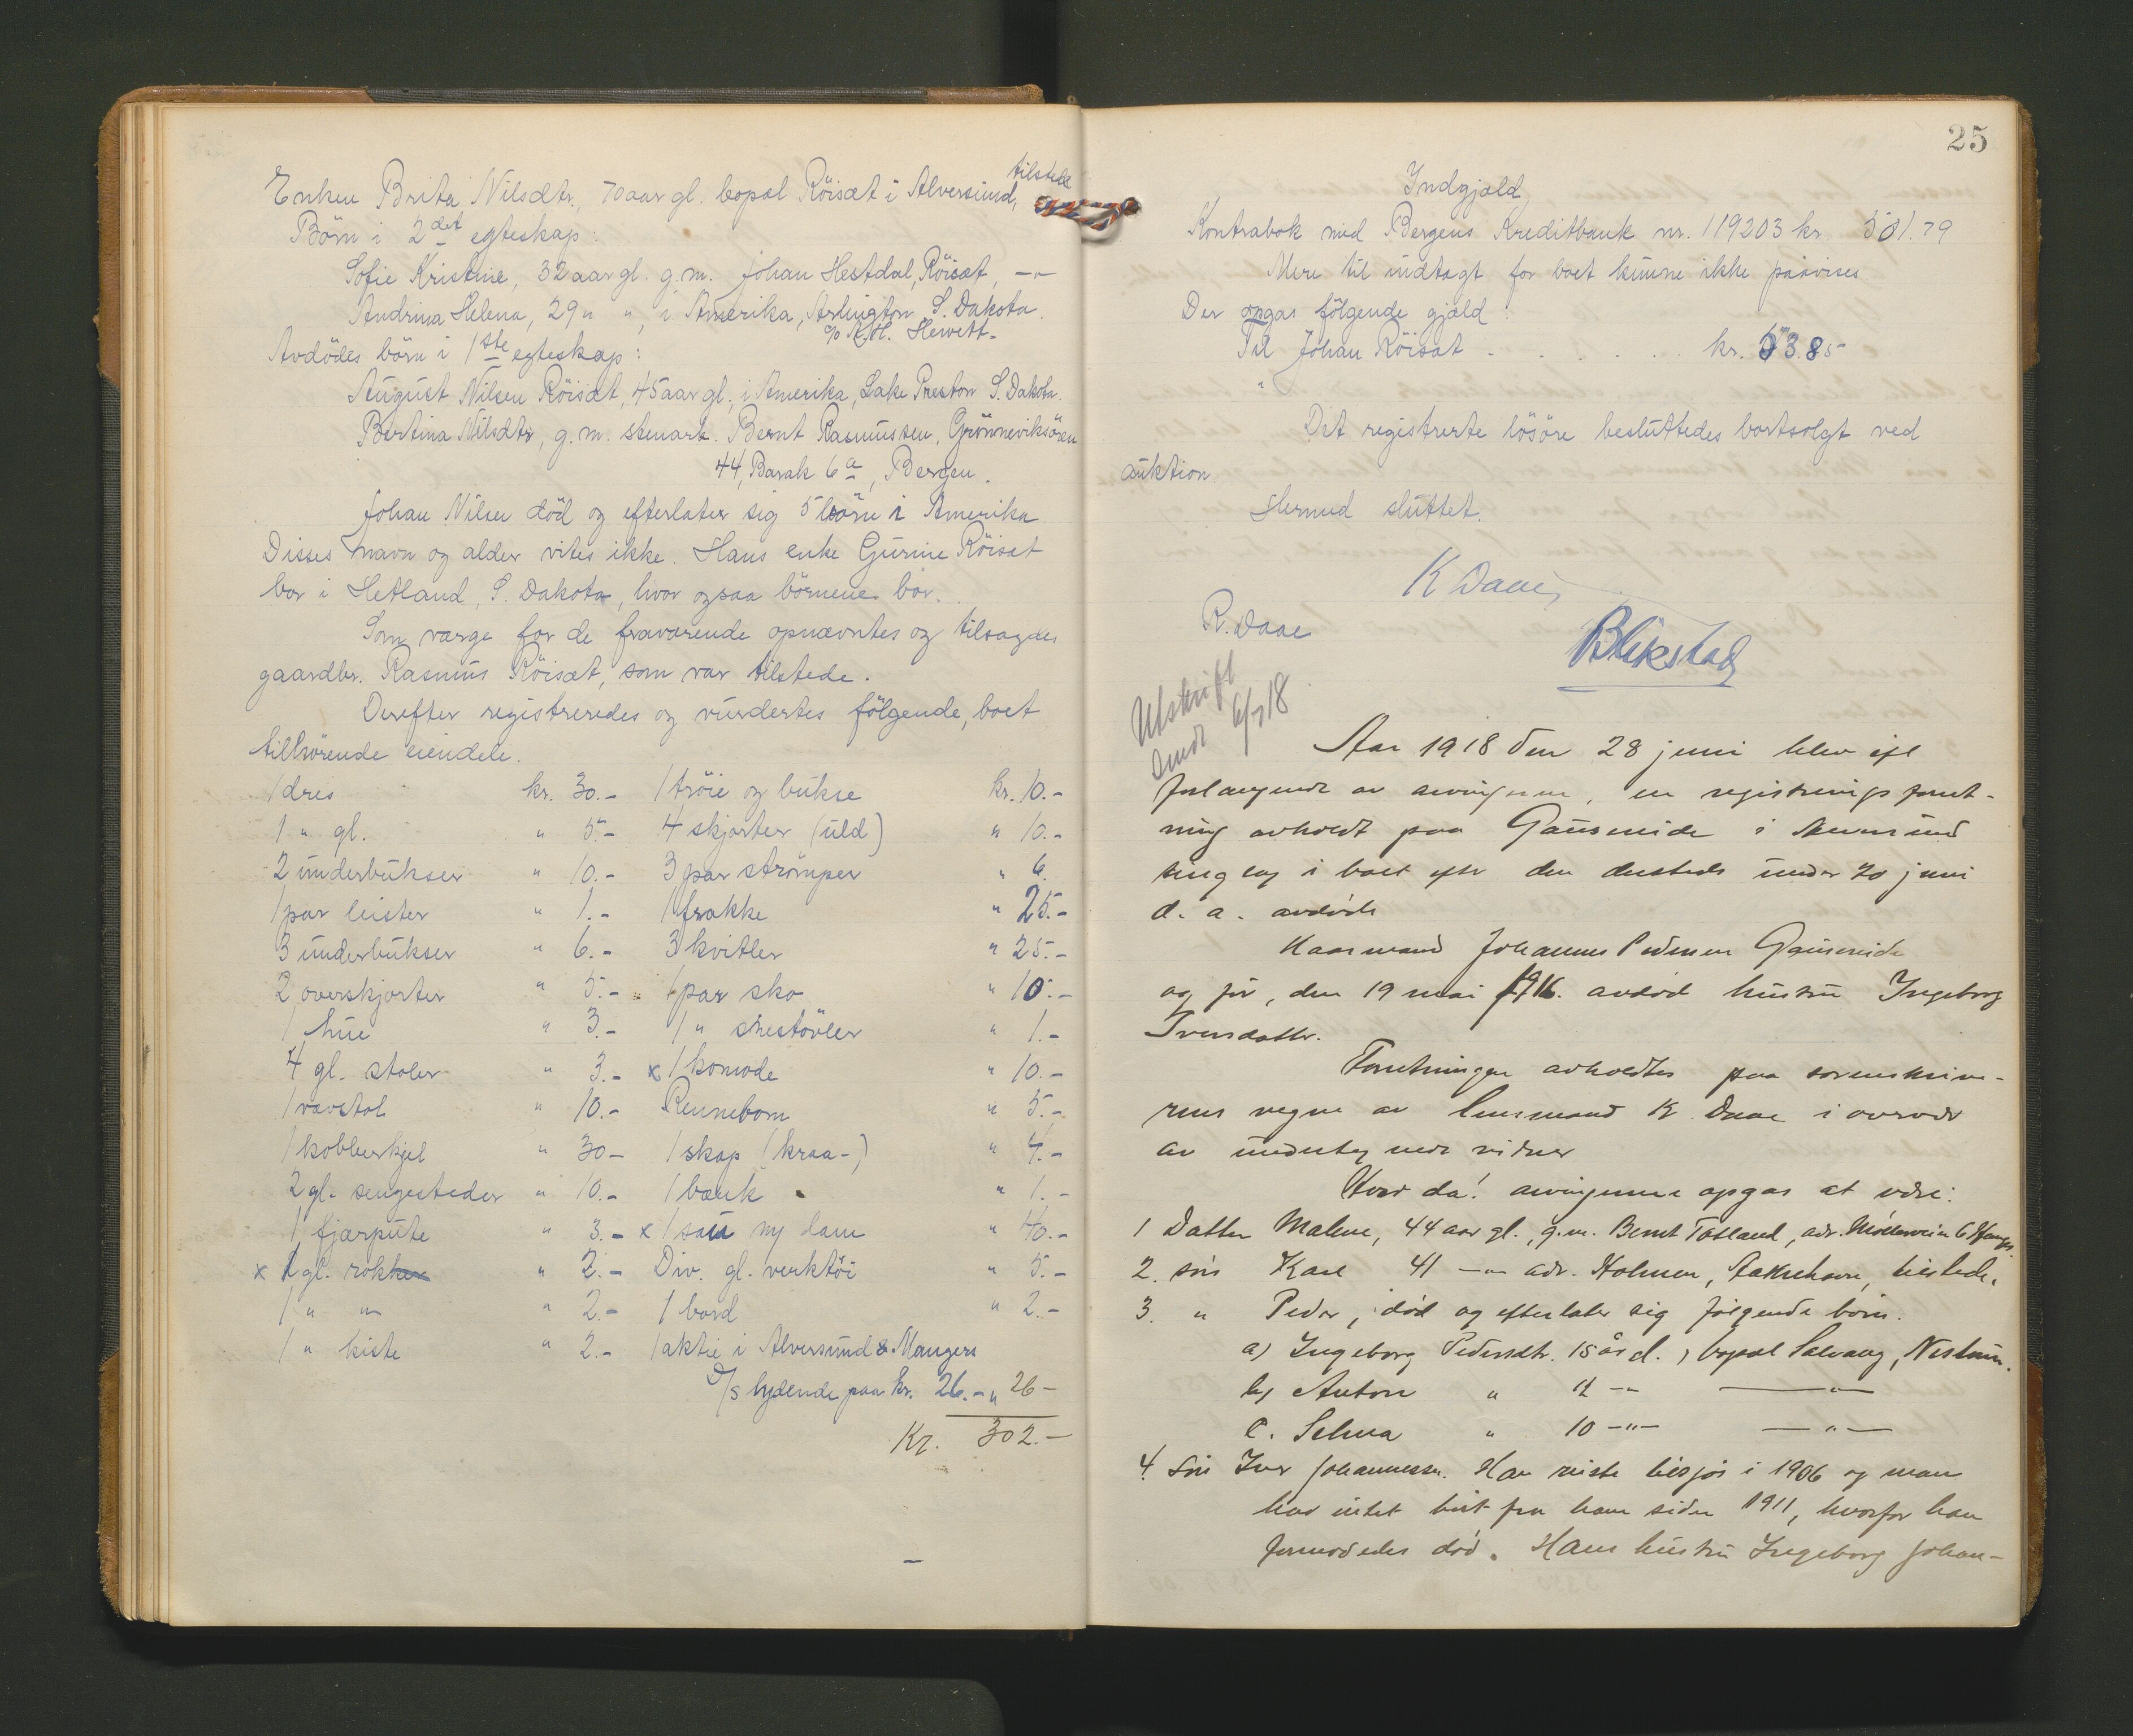 tilstede
Enken Brita Nilsdtr., 70 aar gl. bopæl Röisæt i Alversund,
Börn i 2det egteskap:
Sofie Kristine, 32 aar gl. g.m. Johan Hestdal, Röisæt, -"-
Andrina Helena, 29 " ", i Amerika, Arlington S. Dakota.
c/o Hewett.
Avdödes börn i 1ste egteskap:
August Nilsen Röisæt, 45 aar gl., i Amerika, Lake Preston S. Dakota.
Bertina Nilsdtr, g.m. stenarb. Bernt Rasmussen, Grönneviksören
44, Barak 6a, Bergen.
Johan Nilsen död og efterlater sig 5 börn i Amerika
Disses navn og alder vites ikke. Hans enke Gurine Röisæt
bor i Hetland, S. Dakota, hvor ogsaa börnene bor.
Som verge for de fraværende opnævntes og tilsagdes
gaardbr. Rasmus Röisæt, som var tilstede.
Derefter registreredes og vurdertes fölgende, boet
tilhörende eiendele.
1 dres kr. 30.- 1 tröie og bukse kr. 10.-
1 " gl. " 5.- 4 skjorter (uld) " 10.-
2 underbukser " 10.- 3 par strömper " 6.
1 par leister " 1.- 1 frakke " 25.-
3 underbukser " 6.- 3 kvitler " 25.-
2 overskjorter " 5.- 1 par sko " 10.-
1 hue " 3.- 1 " snestövler " 1.-
4 gl. stoler " 3.- x 1 komode " 10.-
1 vævstol " 10.- Rennebom " 5.-
1 kobberkjel " 30- 1 skap (kraa-) " 4.-
2 gl. sengesteder " 10.- 1 bænk " 1.-
1 fjærpute " 3.- x 1 sau m/ lam " 40.-
x 1 gl. rokker " 2.- Div. gl. verktöi " 5.-
1 " " " 2.- 1 bord " 2.-
1 " kiste " 2.- 1 aktie i Alversund & Mangers
D/s lydende paa kr. 26.- " 26-
Kr. 302.-
25
Indgjæld
Kontrabok med Bergens Kreditbank nr. 119203 kr. 501.79
Mere til indtægt for boet kunne ikke paavises
Der opgas fölgende gjæld:
Til Johan Röisæt . . . . . kr. 3.85
"
Det registrerte lösöre besluttedes bortsolgt ved
auktion.
Hermed sluttet.
K Daae
R. Daae
Blikstad
Utskrift
sendt 6/7 18
Aar 1918 den 28 juni blev efter
forlangende av arvingerne, en registreringsforret-
ning avholdt paa Gauseneide i Alversund
tinglag i boet efter den dersteds under 20 juni
d. a. avdöde
Kaarmand Johannes Pedersen Gauseneide
og för, den 19 mai 1916. avdöd hustru Ingeborg
Iversdatter.
Forretningen avholdtes paa sorenskrive-
rens vegne av lensmand K. Daae i overvær
av undertegnede vidner
Hvor da! arvingerne opgas at være:
1 Datter Malene, 44 aar gl., g.m. Bernt Totland, adr.
2. sön Karl 41 -"- adr. Holmen, tilstede.
3. " Peder, död og efterlater sig fölgende börn.
a) Ingeborg Pedersdtr. 15 år gl., bopæl Salvang, Nestun.
b) Anton " 12 -"- -"-
c. Selma " 10 -"- -"-
4. Sön Iver Johannessen. Han reiste tilsjös i 1906 og man
har intet hört fra ham siden 1911, hvorfor han
formodedes död. Hans hustru Ingeborg Johan-